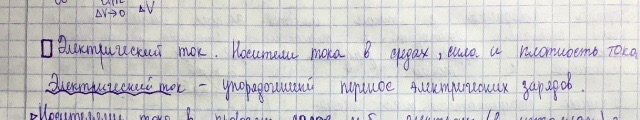 ΔV→0 ΔV
Электрический ток. Носители тока в средах, сила и плотность тока
Электрический ток – упорядочений перенос электрических зарядов.
Носителями тока в